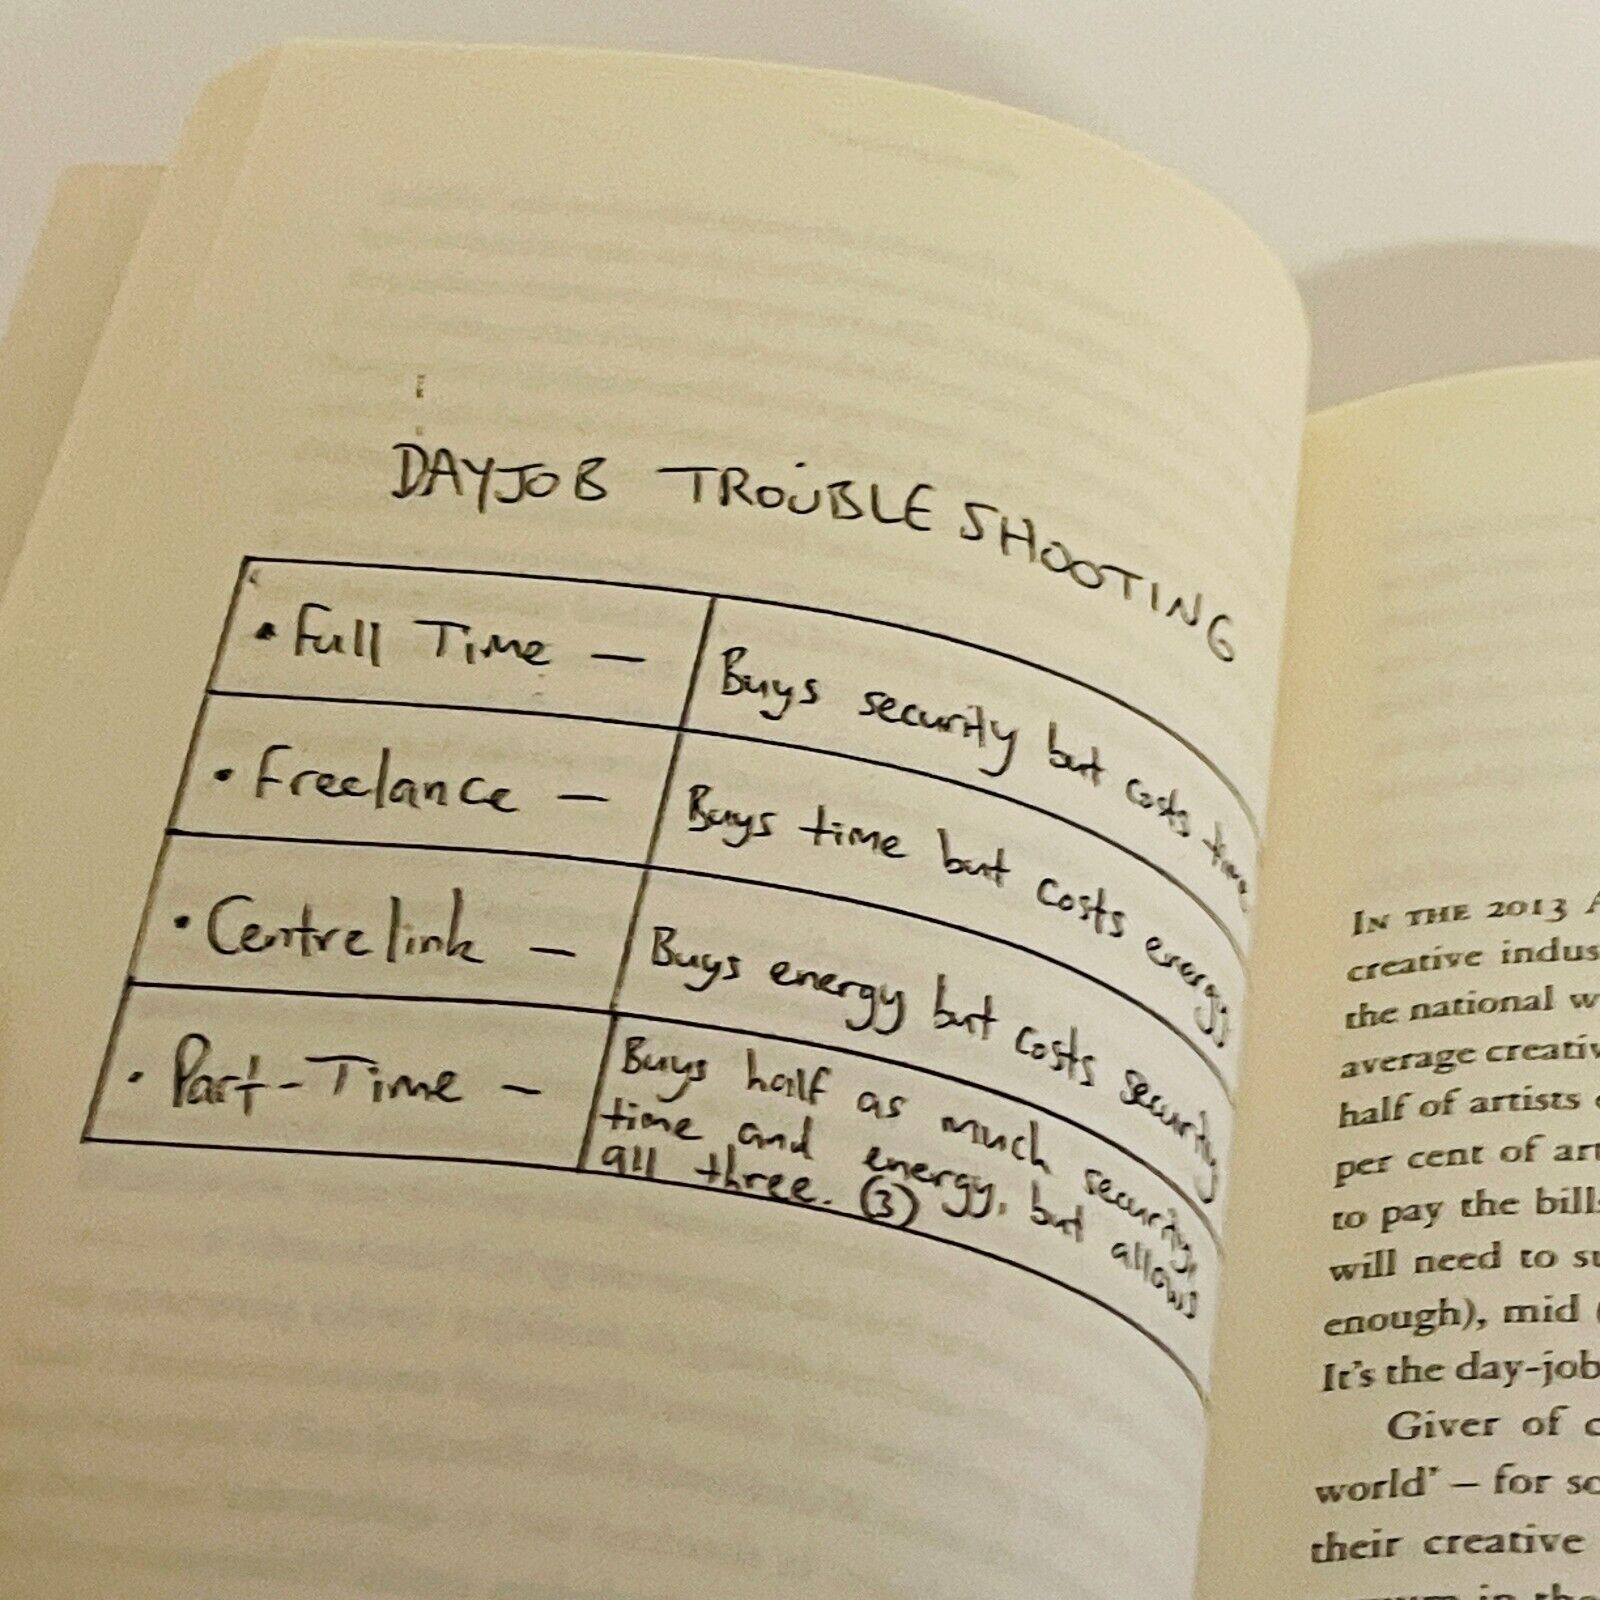 DAYJOB TROUBLESHOOTING
• Full Time — Buys security but costs time
• Freelance — Buys time but costs energy
• Centrelink — Buys energy but costs security
• Part-Time — Buys half as much security,
time and energy, but allows
all three. (3)
IN THE 2013
creative
the national
average
half of artists
per cent of
to pay the
will need to
enough), mid
It's the
Giver of
world' – for
their creative